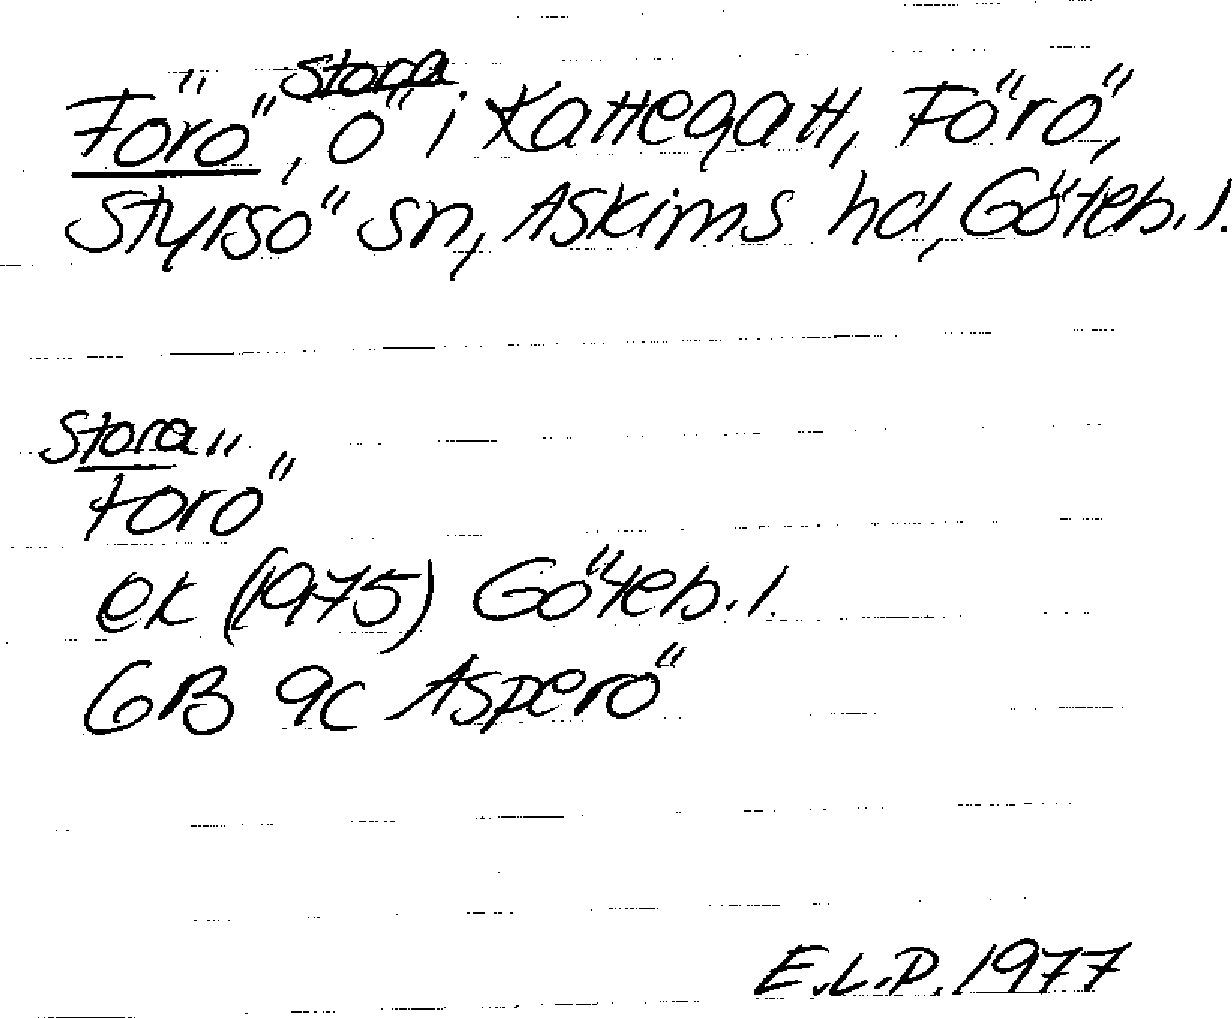 Stora
Förö, ö i Kattegatt, Förö,
Styrsö sn, Askims hd, Göteb. l.
Stora
Förö
ek (1975) Göteb. l.
GB 9c Asperö
E.L.P. 1977